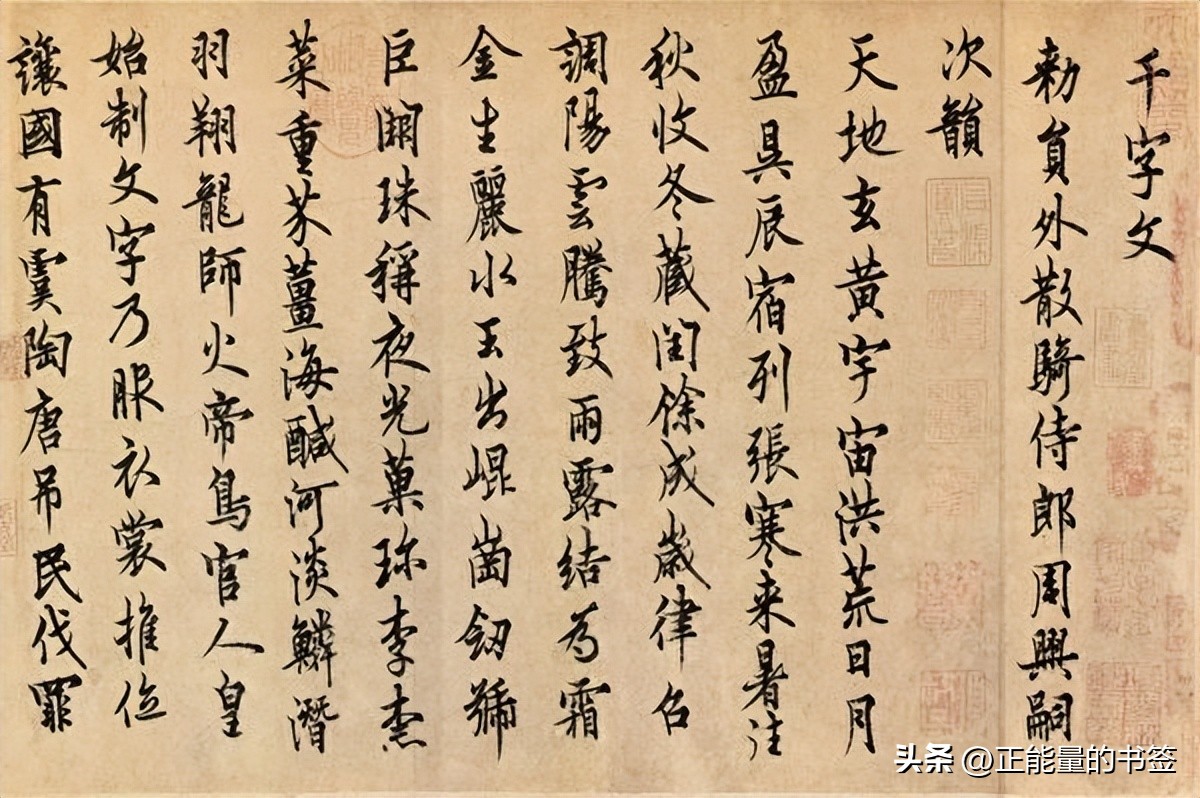 千字文
勅員外散騎侍郎周興嗣
次韻
天地玄黃宇宙洪荒日月
盈昃辰宿列張寒来暑往
秋收冬藏閏餘成歲律召
調陽雲騰致雨露結為霜
金生麗水玉出崐崗劒號
巨闕珠稱夜光菓珎李柰
菜重芥薑海醎河淡鱗潛
羽翔龍師火帝鳥官人皇
始制文字乃服衣裳推位
讓國有虞陶唐吊民伐罪
头条 @正能量的书签